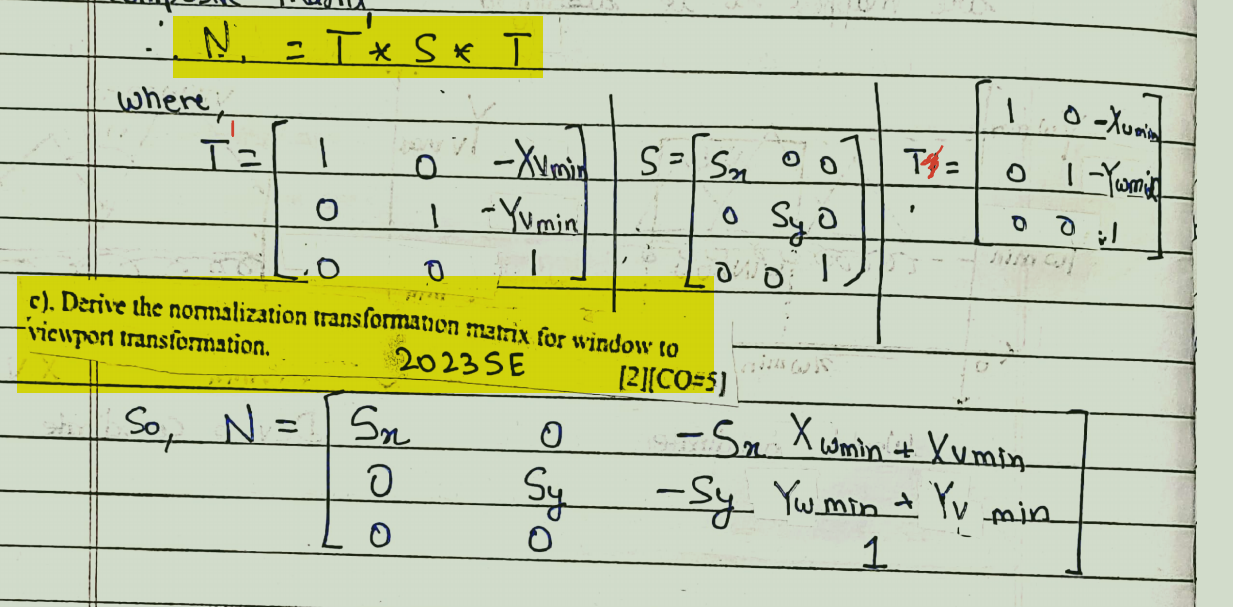 ∴ N. = T' * S * T
where,
T' = [ 1 0 -Xvmin
0 1 -Yvmin
0 0 1 ]
S = [ Sx 0 0
0 Sy 0
0 0 1 ]
T = [ 1 0 -Xwmin
0 1 -Ywmin
0 0 1 ]
c). Derive the normalization transformation matrix for window to
viewport transformation.
2023SE
[2][CO=5]
So, N = [ Sx 0 -Sx Xwmin + Xvmin
0 Sy -Sy Ywmin + Yv min
0 0 1 ]